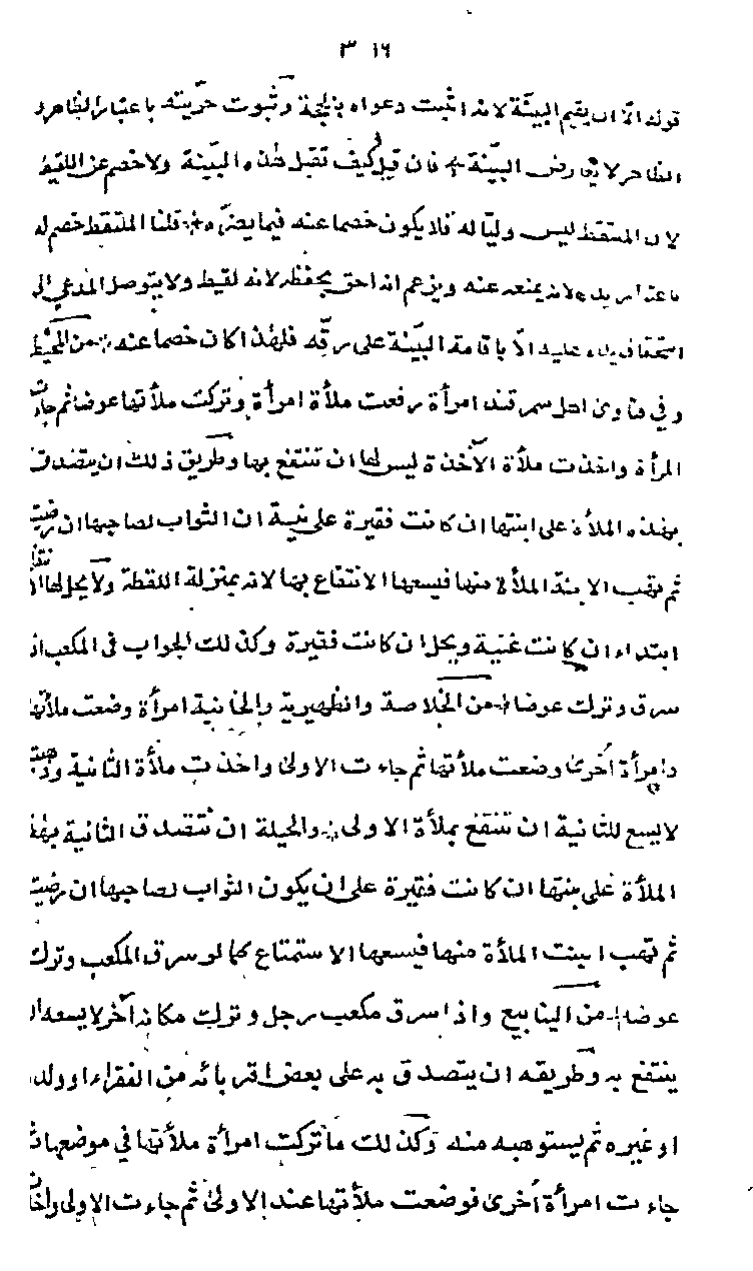 ٣١٦
قوله الا ان يقيم البينة لانه اثبت دعواه بالحجة وثبوت حريته باعتبار الظاهر و
الظاهر لا يعارض البينة فان قيل كيف تقبل هذه البينة ولا خصم عن اللقيط
لان الملتقط ليس وليا له فلا يكون خصما عنه فيما يضره قلنا الملتقط خصم له
باعتبار يده لانه يمنعه عنه ويزعم انه احق بحفظه لانه لقيط ولا يتوصل المدعي الى
استحقاق يده عليه الا باقامة البينة على رقه فلهذا كان خصما عنه من المحيط
وفي فتاوى اهل سمرقند امرأة رفعت ملأة امرأة وتركت ملأتها عوضا ثم جاءت
المرأة واخذت ملأة الآخذة ليس لها ان تنتفع بها وطريق ذلك ان يتصدق
بهذه الملأة على ابنتها ان كانت فقيرة على نية ان الثواب لصاحبها ان رضيت
ثم تهب الابنة الملأة منها فيسعها الانتفاع بها لانه بمنزلة اللقطة ولا يحل لها ان
ابتداء ان كانت غنية ويحل ان كانت فقيرة وكذلك الجواب في المكعب اذا
سرق وترك عوضا من الخلاصة والظهيرية والخانية امرأة وضعت ملأتها
وامرأة أخرى وضعت ملأتها ثم جاءت الاولى واخذت ملأة الثانية وذهبت
لا يسع للثانية ان تنتفع بملأة الاولى والحيلة ان تتصدق الثانية بهذه
الملأة على بنتها ان كانت فقيرة على ان يكون الثواب لصاحبها ان رضيت
ثم تهب البنت الملأة منها فيسعها الاستمتاع كما لو سرق المكعب وترك
عوضه من الينابيع واذا سرق مكعب رجل وترك مكانه آخر لا يسعه ان
ينتفع به وطريقه ان يتصدق به على بعض اقربائه من الفقراء او ولده
او غيره ثم يستوهبه منه وكذلك ما تركت امرأة ملأتها في موضعها ثم
جاءت امرأة أخرى فوضعت ملأتها عند الاولى ثم جاءت الاولى واخذت